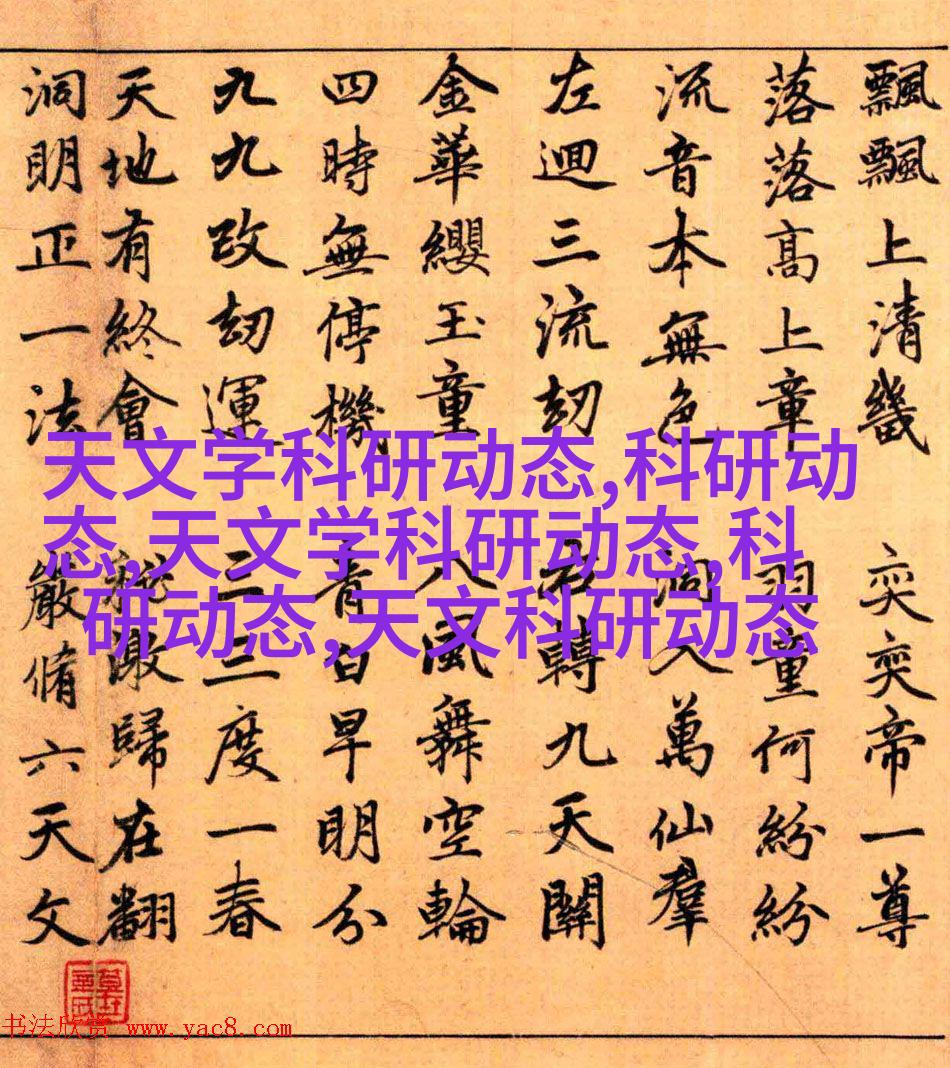 飄飄上清畿 奕奕帝一尊
落落高上章 羽童何紛紛
流音本無色 入萬仙羣
左迴三流刧 右轉九天關
金華纓玉童 八風舞空輪
四時無停機 青白早明分
九九改刧運 三三度一春
天地有終會 激歸在翻
洞明正一法 嚴脩六天文
天文学科研动态,科研动
态,天文学科研动态,科
研动态,天文科研动态
书法欣赏 www.yac8.com